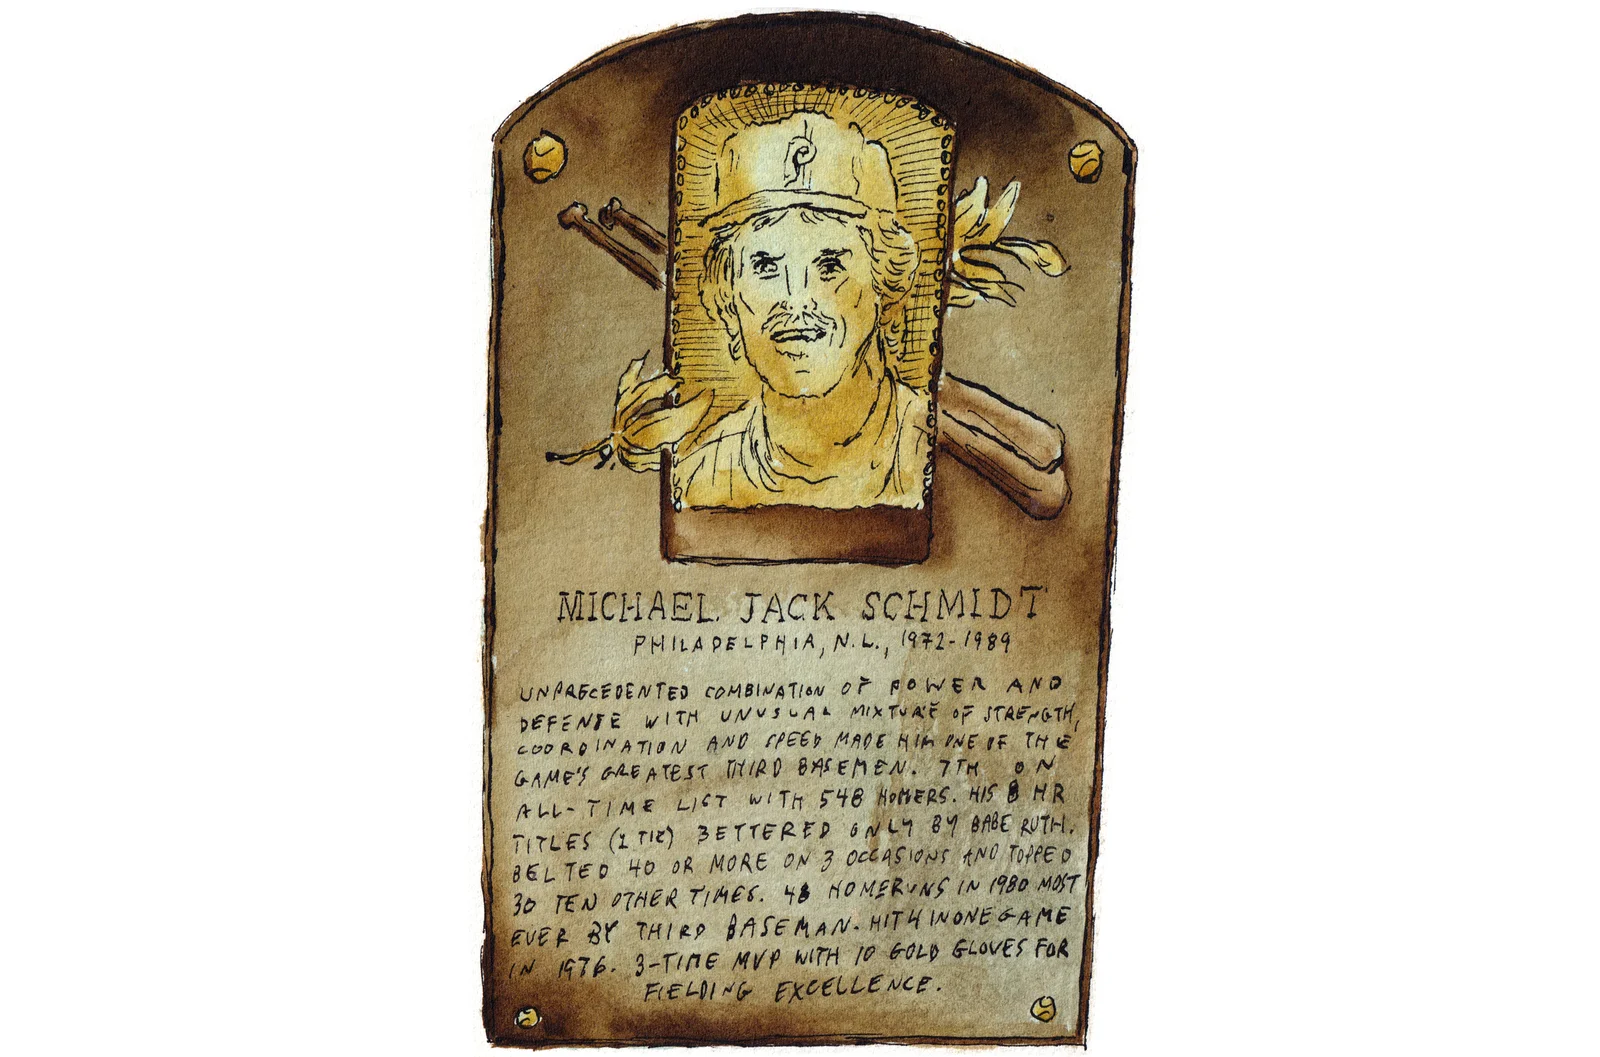 P
MICHAEL JACK SCHMIDT
PHILADELPHIA, N.L., 1972-1989
UNPRECEDENTED COMBINATION OF POWER AND
DEFENSE WITH UNUSUAL MIXTURE OF STRENGTH,
COORDINATION AND SPEED MADE HIM ONE OF THE
GAME'S GREATEST THIRD BASEMEN. 7TH ON
ALL-TIME LIST WITH 548 HOMERS. HIS 8 HR
TITLES (1 TIE) BETTERED ONLY BY BABE RUTH.
BELTED 40 OR MORE ON 3 OCCASIONS AND TOPPED
30 TEN OTHER TIMES. 48 HOMERUNS IN 1980 MOST
EVER BY THIRD BASEMAN. HIT 4 IN ONE GAME
IN 1976. 3-TIME MVP WITH 10 GOLD GLOVES FOR
FIELDING EXCELLENCE.